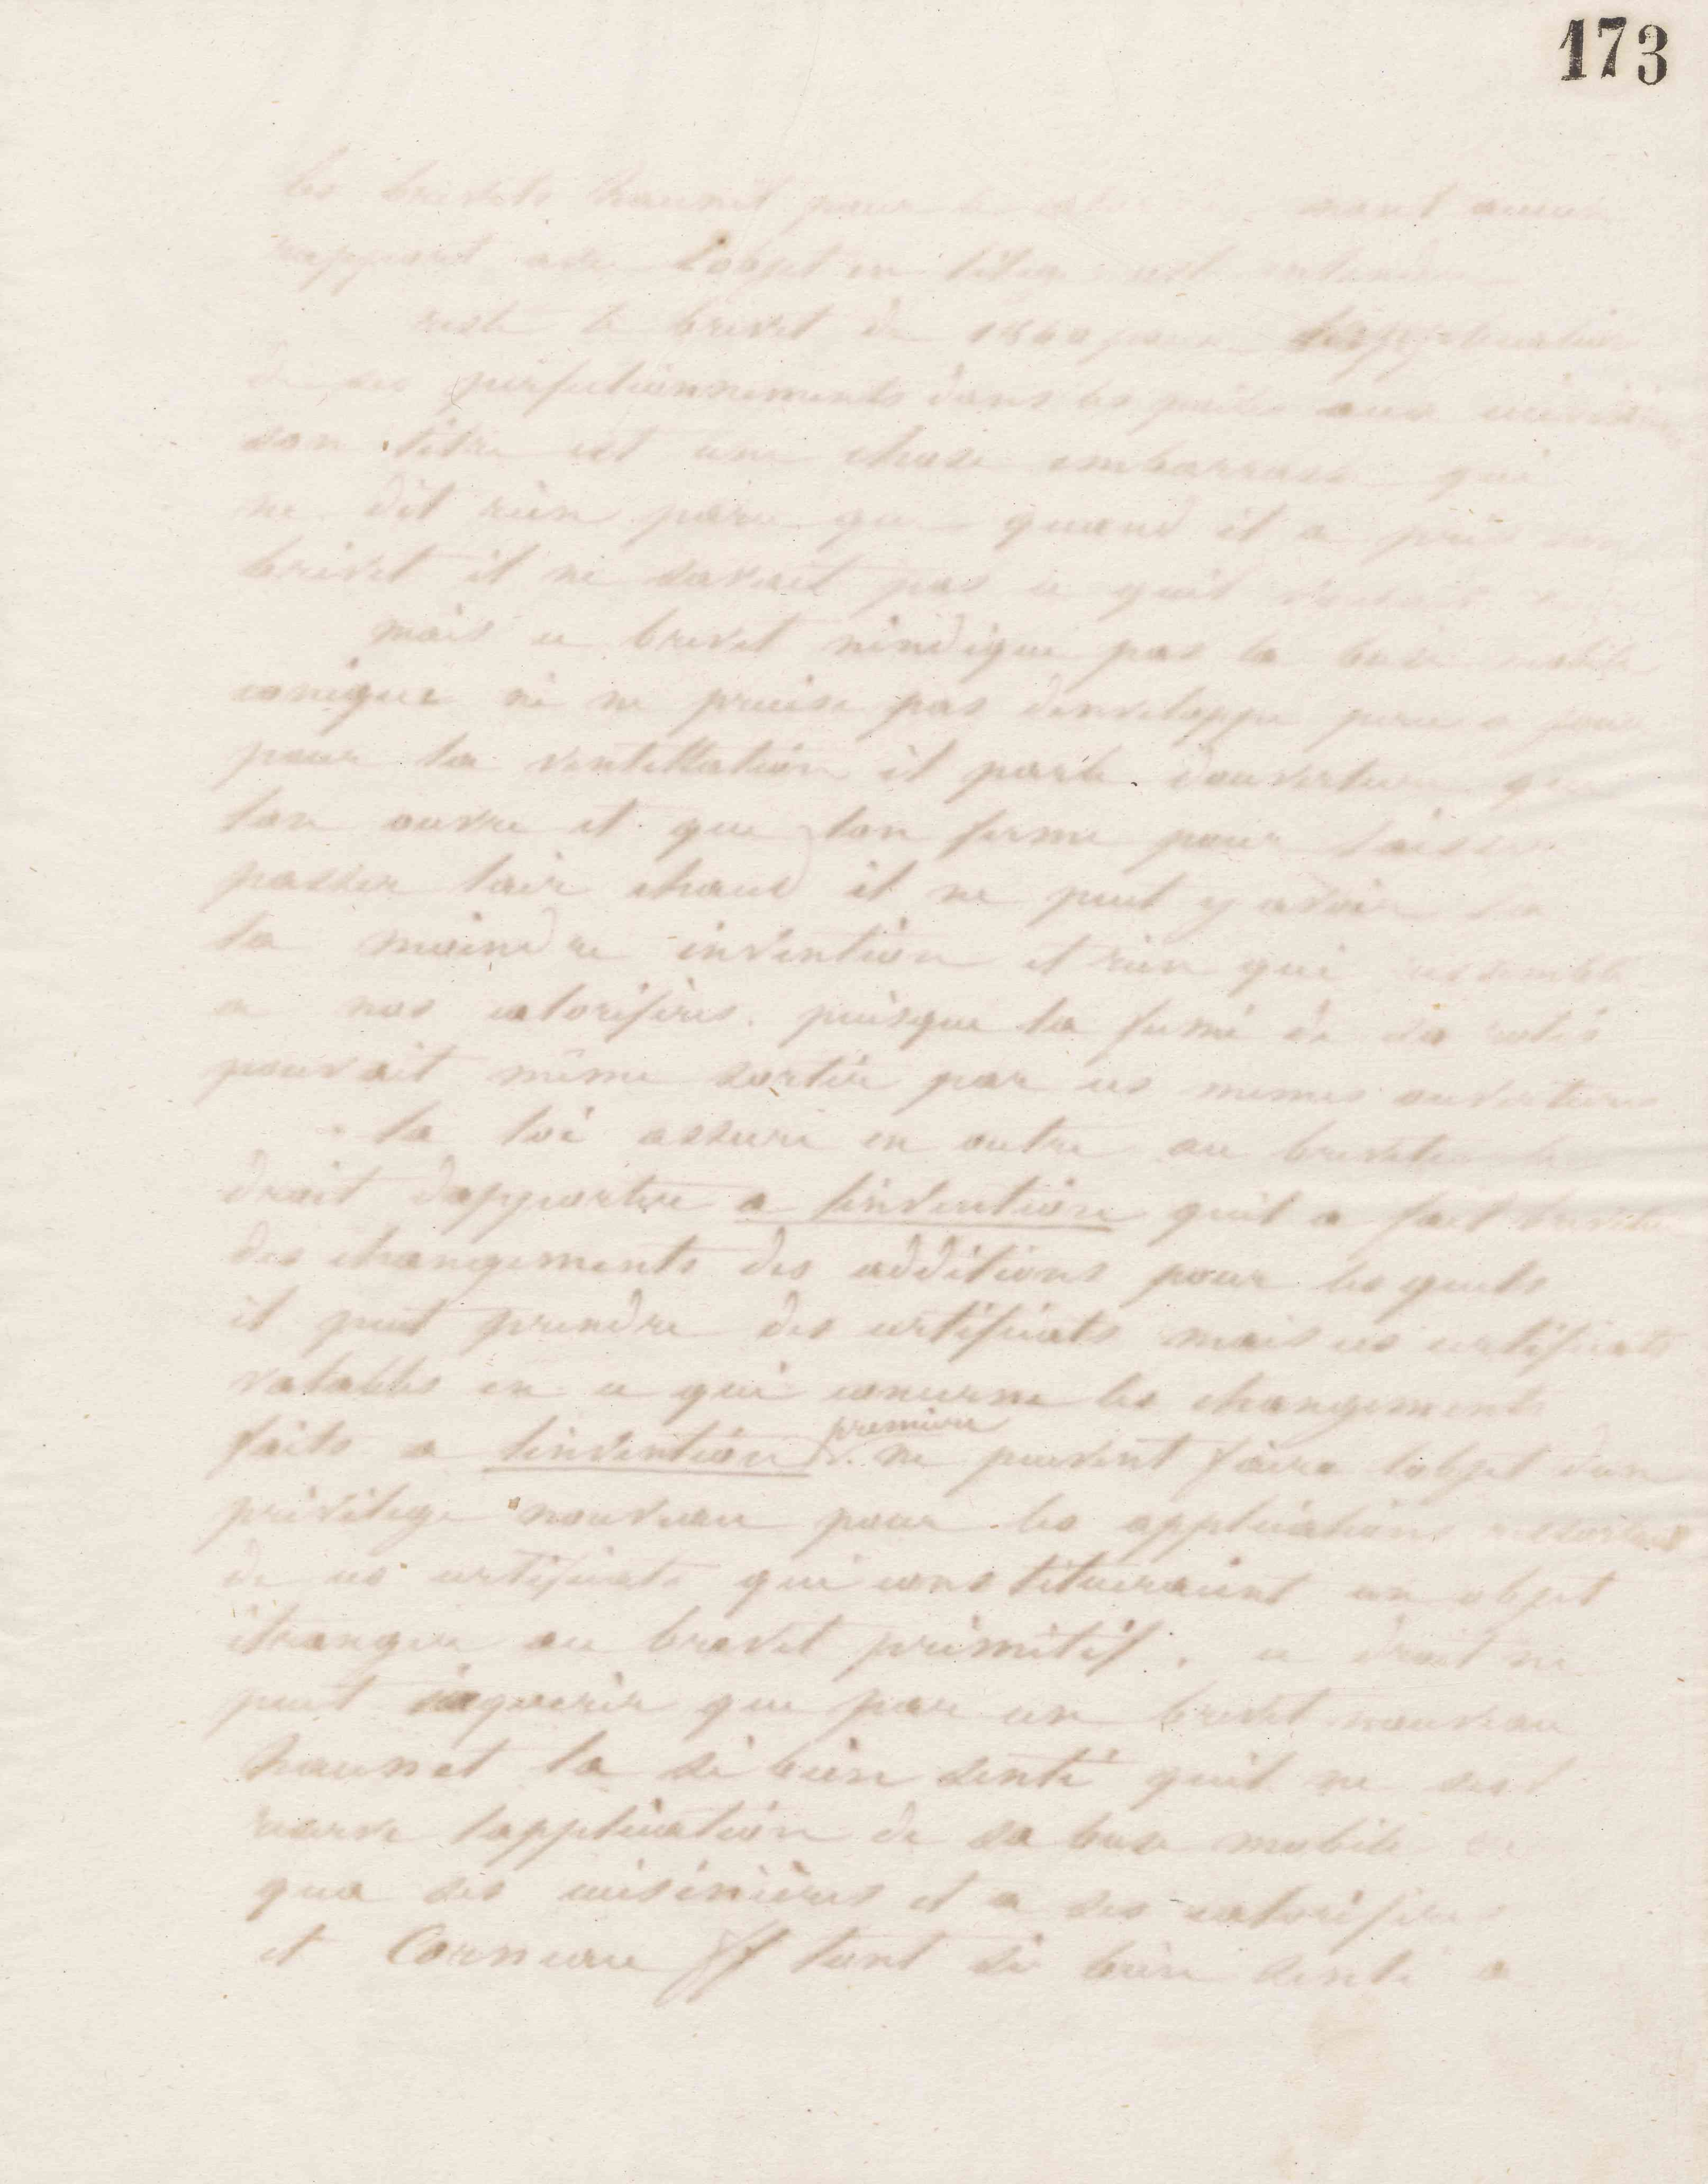 173
les brevets haunet pour le nont aucun
rapport avec lobjet en litige
reste le brevet de 1860 pour
de ses perfectionnements dans les poeles aux
son titre est une chose embarrassé qui
ne dit rien parce que quand il a pris son
brevet il ne savait pas ce quil
mais ce brevet nindique pas la buse mobile
conique ni ne precise pas denveloppe
pour la ventillation il parle douvertures que
lon ouvre et que lon ferme pour laisser
passer lair chaud il ne peut y avoir
la moindre invention et rien qui ressemble
a nos calorifères. puisque la fumé de
pouvait même sortir par ces memes ouvertures
la loi assure en outre au breveté le
droit dapporter a linvention quil a fait breveter
des changements des additions pour les quels
il peut prendre des certificats mais ces certificats
valables en ce qui concerne les changements
faits a linvention premiere ne peuvent faire lobjet dun
privilege nouveau pour les applications
de ces certificats qui constitueraient un objet
étranger au brevet primitif. ce droit ne
peut saquerir que par un brevet nouveau
haunet la si bien senti quil ne sest
reservé lapplication de sa buse mobile
qua ses cuisinières et a ses calorifères
et Corneau ff lont si bien senti a